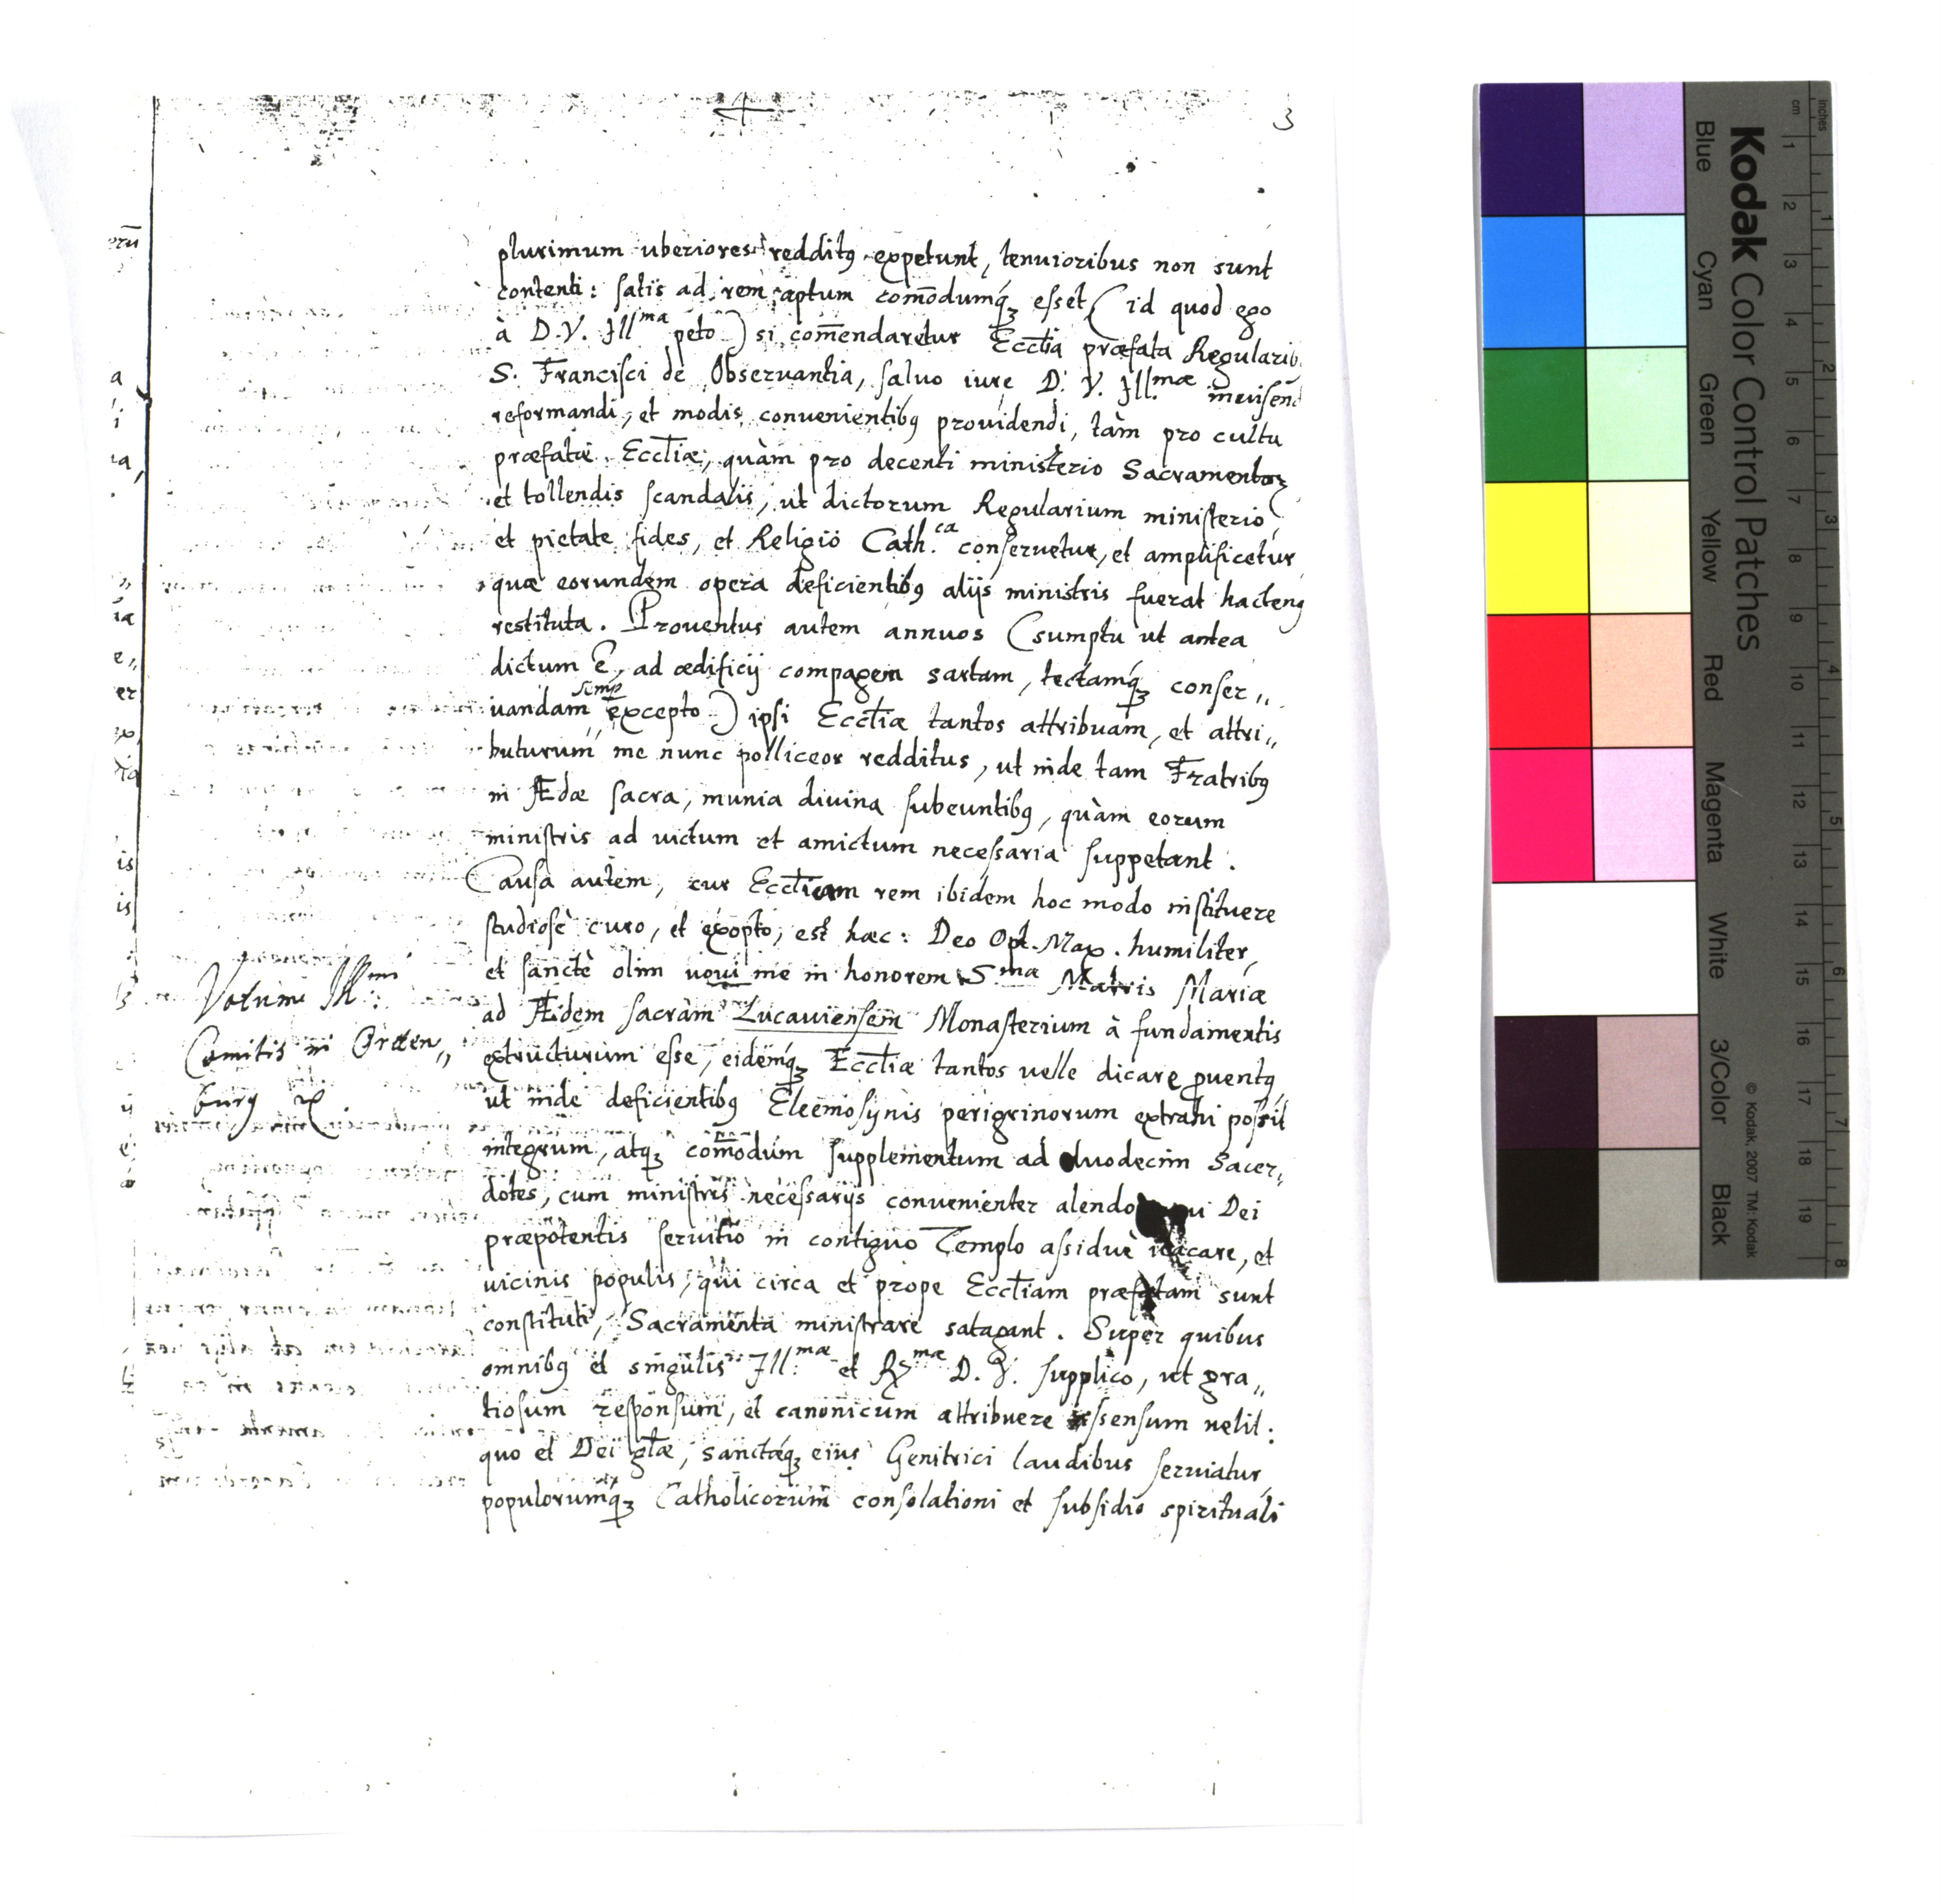 3
plurimum uberiores redditꝯ expetunt, tenuioribus non sunt
contenti: satis ad rem aptum com̄odumqꝫ esset (id quod ego
à D.V. Illma peto) si com̄endaretur Ecctia præfata Regularib
S. Francisci de Observantia, salvo iure D. V. Ill.mæ invisend
reformandi, et modis convenientibꝯ providendi, tàm pro cultu
præfatæ Ecctiæ, quàm pro decenti ministerio Sacramentoꝝ
et tollendis scandalis, ut dictorum Regularium ministerio
et pietate fides, et Religio Cath.ca conservetur, et amplificetur
quæ eorundem opera deficientibꝯ alijs ministris fuerat hactenꝯ
restituta. Proventus autem annuos (sumptu ut antea
dictum ē, ad ædificij compagem sartam, tectamqꝫ conser„
vandam semp excepto) ipsi Ecctiæ tantos attribuam, et attri„
buturum me nunc polliceor redditus, ut inde tam Fratribꝯ
in Æde sacra, munia divina subeuntibꝯ, quàm eorum
ministris ad victum et amictum necessaria suppetant.
Causa autem, cur Eccticam rem ibidem hoc modo instituere
studiosè curo, et exopto, est hæc: Deo Opt. Max. humiliter,
et sanctè olim vovi me in honorem S.mæ Matris Mariæ
ad Ædem sacram Lucaviensem Monasterium à fundamentis
extructurum esse, eidemqꝫ Ecctiæ tantos velle dicare ꝓventꝯ
ut inde deficientibꝯ Eleemosynis perigrinorum extrahi possit
integrum, atqꝫ com̄odum supplementum ad duodecim Sacer„
dotes, cum ministris necessarijs convenienter alendo qui Dei
præpotentis servitio in contiguo Templo assiduè vacare, et
vicinis populis, qui circa et prope Ecctiam præfatam sunt
constituti, Sacramenta ministrare satagant. Super quibus
omnibꝯ et singulis Ill:mæ et Rmæ D. V. supplico, ut gra„
tiosum responsum, et canonicum attribuere assensum velit:
quo et Dei gtæ, sanctæqꝫ eius Genitrici laudibus serviatur,
populorumqꝫ Catholicorum consolationi et subsidio spirituali
Votum Ill:mi
Comitis in Orten„
burg
Kodak Color Control Patches
Blue
Cyan
Green
Yellow
Red
Magenta
White
3/Color
Black
© Kodak, 2007 TM: Kodak
cm
1 2 3 4 5 6 7 8 9 10 11 12 13 14 15 16 17 18 19
inches
1 2 3 4 5 6 7 8